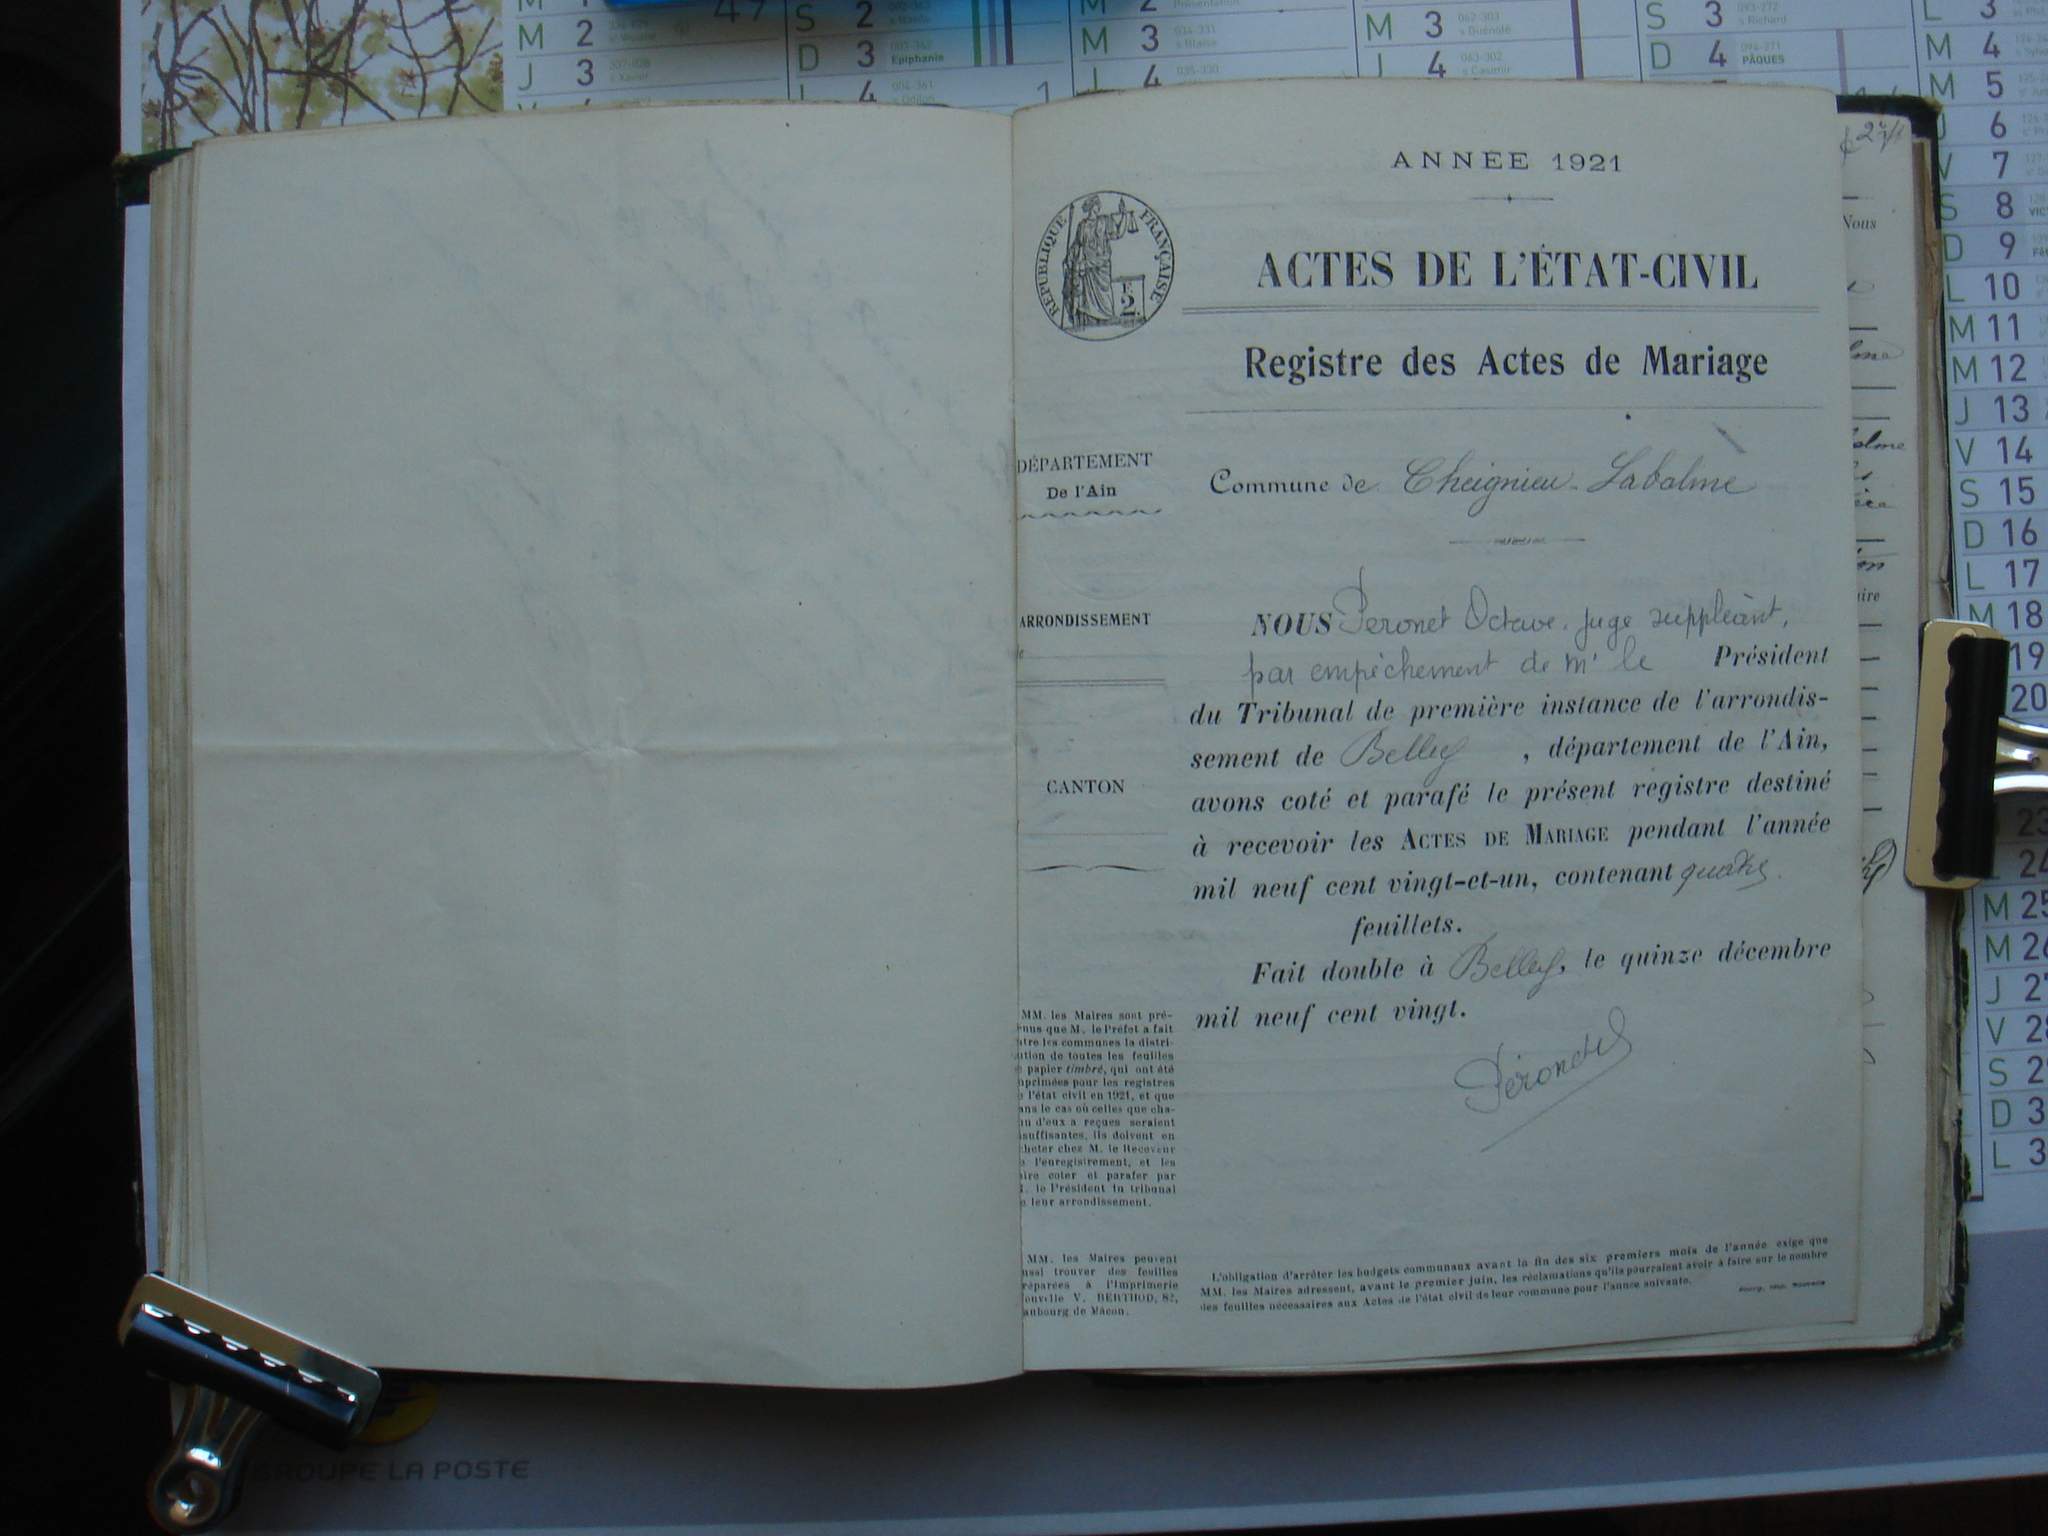 ANNÉE 1921
RÉPUBLIQUE FRANÇAISE
2
ACTES DE L'ÉTAT-CIVIL
Registre des Actes de Mariage
DÉPARTEMENT
De l'Ain
Commune de Cheignieu-Labalme
ARRONDISSEMENT
CANTON
NOUS Péronet Octave, juge suppléant,
par empêchement de Mr le Président
du Tribunal de première instance de l'arrondis-
sement de Belley, département de l'Ain,
avons coté et parafé le présent registre destiné
à recevoir les ACTES DE MARIAGE pendant l'année
mil neuf cent vingt-et-un, contenant quatre
feuillets.
Fait double à Belley, le quinze décembre
mil neuf cent vingt.
Péronet
MM. les Maires sont pré-
nus que M. le Préfet a fait
tre les communes la distri-
ution de toutes les feuilles
papier timbré, qui ont été
mprimées pour les registres
l'état civil en 1921, et que
ans le cas où celles que cha-
un d'eux a reçues seraient
suffisantes, ils doivent en
cheter chez M. le Receveur
l'enregistrement, et les
ire coter et parafer par
le Président du tribunal
leur arrondissement.
MM. les Maires peuvent
ussi trouver des feuilles
réparées à l'Imprimerie
ouvelle V. BERTHOD, 82,
aubourg de Mâcon.
L'obligation d'arrêter les budgets communaux avant la fin des six premiers mois de l'année exige que
MM. les Maires adressent, avant le premier juin, les réclamations qu'ils pourraient avoir à faire sur le nombre
des feuilles nécessaires aux Actes de l'état civil de leur commune pour l'année suivante.
Nous
aire
M 2
J 3
S 2
D 3 Epiphanie
L 4 s Odilon
M 3 s Blaise
4
M 3 s Guénolé
J 4 s Casimir
S 3 s Richard
D 4 PÂQUES
L 3
M 4
M 5
J 6
V 7
S 8
D 9
L 10
M 11
M 12
J 13
V 14
S 15
D 16
L 17
M 18
19
20
23
24
M 25
M 26
J 27
V 28
S 29
D 3
L 3
GROUPE LA POSTE